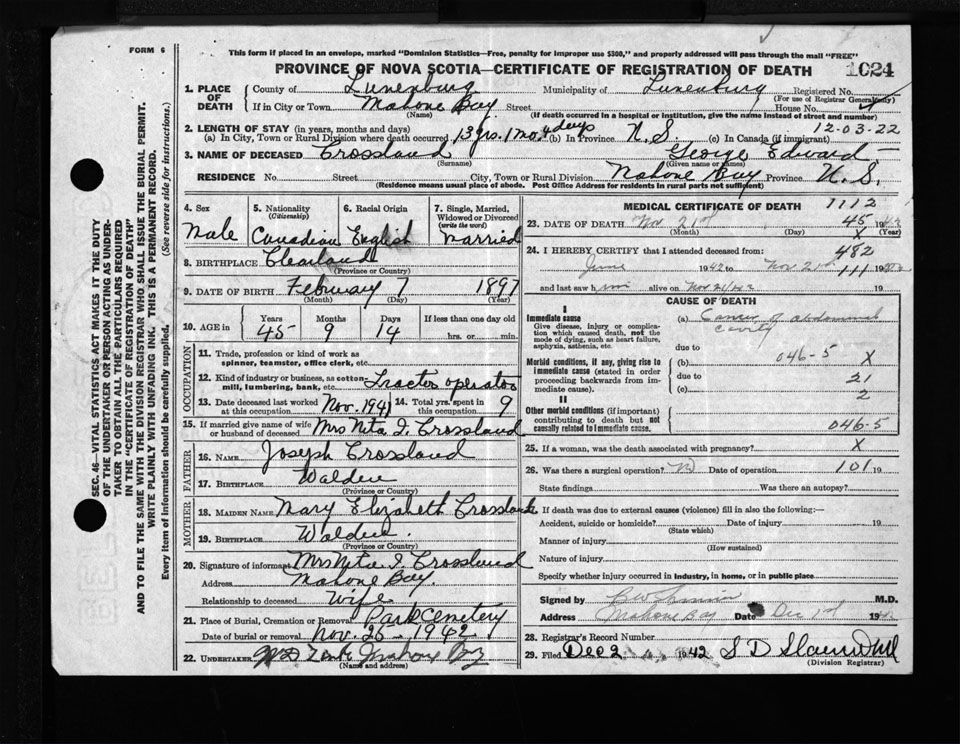 FORM 6
This form if placed in an envelope, marked "Dominion Statistics—Free, penalty for improper use $300," and properly addressed will pass through the mail "FREE"
PROVINCE OF NOVA SCOTIA—CERTIFICATE OF REGISTRATION OF DEATH 1024
1. PLACE OF DEATH County of Lunenburg Municipality of Lunenburg Registered No.
(For use of Registrar Generally)
If in City or Town Mahone Bay Street House No.
(Name) (If death occurred in a hospital or institution, give its name instead of street and number)
2. LENGTH OF STAY (in years, months and days) 12-03-22
(a) In City, Town or Rural Division where death occurred 13 yrs. 1 mo. 4 days (b) In Province N.S. (c) In Canada (if immigrant)
3. NAME OF DECEASED Crossland George Edward
(Surname) (Given name or names)
RESIDENCE No. Street City, Town or Rural Division Mahone Bay Province N.S.
(Residence means usual place of abode. Post Office Address for residents in rural parts not sufficient)
4. Sex Male
5. Nationality (Citizenship) Canadian
6. Racial Origin English
7. Single, Married, Widowed or Divorced (write the word) Married
8. BIRTHPLACE Clearland
(Province or Country)
9. DATE OF BIRTH February 7 1897
(Month) (Day) (Year)
10. AGE in Years 45 Months 9 Days 14 If less than one day old hrs. or min.
OCCUPATION
11. Trade, profession or kind of work as spinner, teamster, office clerk, etc.
12. Kind of industry or business, as cotton mill, lumbering, bank, etc. Tractor operator
13. Date deceased last worked at this occupation Nov. 1941 14. Total yrs. spent in this occupation 9
15. If married give name of wife or husband of deceased Mrs Nita I. Crossland
FATHER
16. NAME Joseph Crossland
17. BIRTHPLACE Walden
(Province or Country)
MOTHER
18. MAIDEN NAME Mary Elizabeth Crossland
19. BIRTHPLACE Walden.
(Province or Country)
20. Signature of informant Mrs Nita I. Crossland
Address Mahone Bay.
Relationship to deceased Wife
21. Place of Burial, Cremation or Removal Park Cemetery
Date of burial or removal Nov. 23 - 1942
22. UNDERTAKER Mahone Bay
(Name and address)
MEDICAL CERTIFICATE OF DEATH
1112
23. DATE OF DEATH Nov 21st 45 1942
(Month) (Day) X (Year)
24. I HEREBY CERTIFY that I attended deceased from: 482
June 1942 to Nov 21st 111 1942
and last saw him alive on Nov 21/42
CAUSE OF DEATH
I
Immediate cause
Give disease, injury or complication which caused death, not the mode of dying, such as heart failure, asphyxia, asthenia, etc.
(a) Cancer of abdominal cavity
due to
046-5 X
Morbid conditions, if any, giving rise to immediate cause (stated in order proceeding backwards from immediate cause).
(b)
due to 21
(c) 2
II
Other morbid conditions (if important) contributing to death but not causally related to immediate cause.
046-5
25. If a woman, was the death associated with pregnancy? X
26. Was there a surgical operation? No Date of operation 101 19
State findings Was there an autopsy?
27. If death was due to external causes (violence) fill in also the following:—
Accident, suicide or homicide? Date of injury 19
(State which)
Manner of injury
(How sustained)
Nature of injury
Specify whether injury occurred in industry, in home, or in public place
Signed by M.D.
Address Mahone Bay Date Dec 1st 1942
28. Registrar's Record Number
29. Filed Dec 2 1942 S D
(Division Registrar)
SEC. 46—VITAL STATISTICS ACT MAKES IT THE DUTY
OF THE UNDERTAKER OR PERSON ACTING AS UNDERTAKER TO OBTAIN ALL THE PARTICULARS REQUIRED
IN THE "CERTIFICATE OF REGISTRATION OF DEATH"
AND TO FILE THE SAME WITH THE DIVISION REGISTRAR WHO SHALL ISSUE THE BURIAL PERMIT.
WRITE PLAINLY WITH UNFADING INK. THIS IS A PERMANENT RECORD.
Every item of information should be carefully supplied. (See reverse side for instructions.)